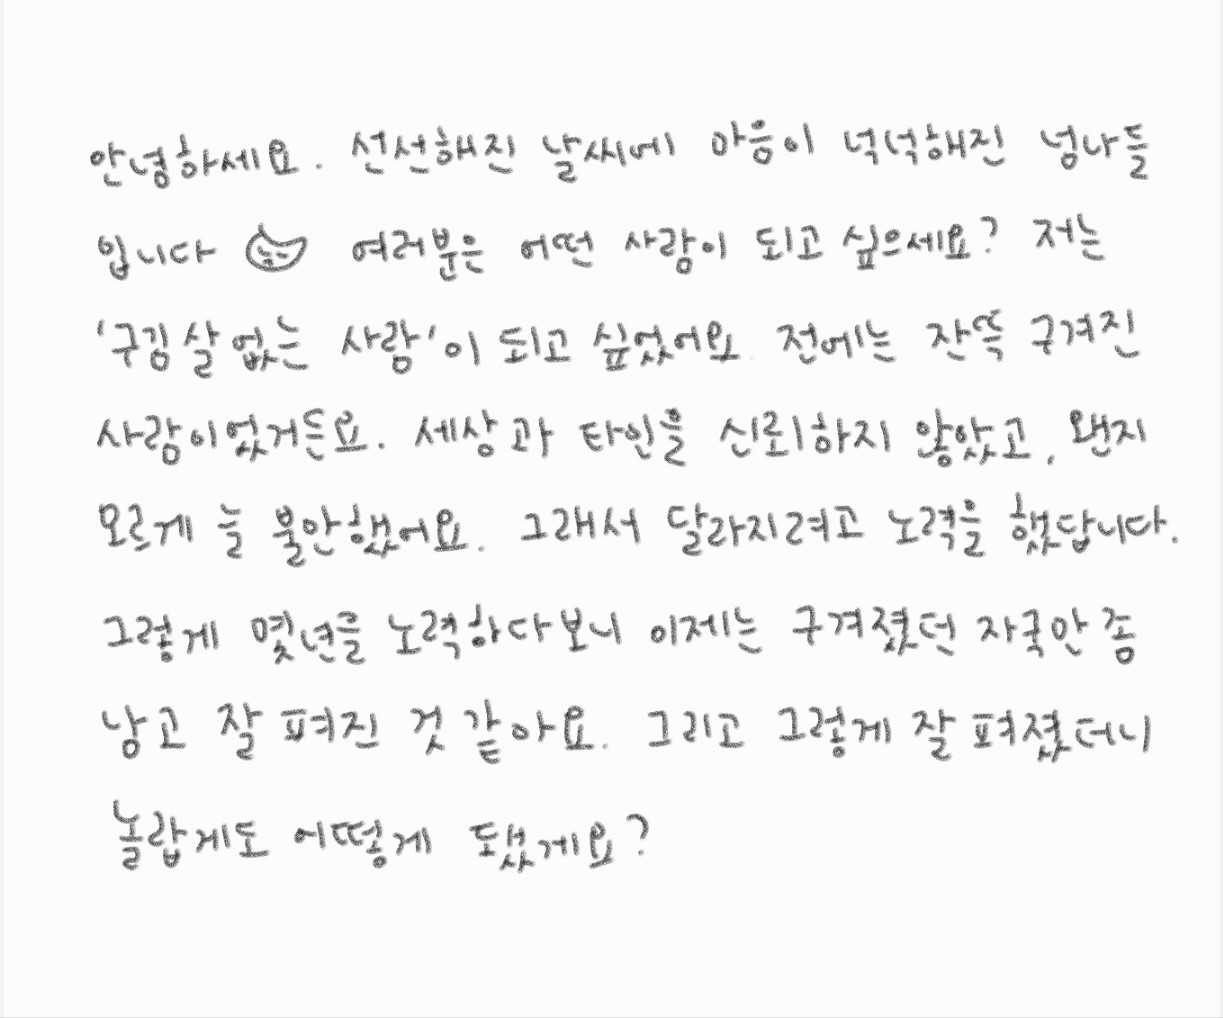 안녕하세요. 선선해진 날씨에 마음이 넉넉해진 넝나들
입니다 여러분은 어떤 사람이 되고 싶으세요? 저는
'구김살 없는 사람'이 되고 싶었어요. 전에는 잔뜩 구겨진
사람이었거든요. 세상과 타인을 신뢰하지 않았고, 왠지
모르게 늘 불안했어요. 그래서 달라지려고 노력을 했답니다.
그렇게 몇년을 노력하다보니 이제는 구겨졌던 자국만 좀
남고 잘 펴진 것 같아요. 그리고 그렇게 잘 펴졌더니
놀랍게도 어떻게 됐게요?